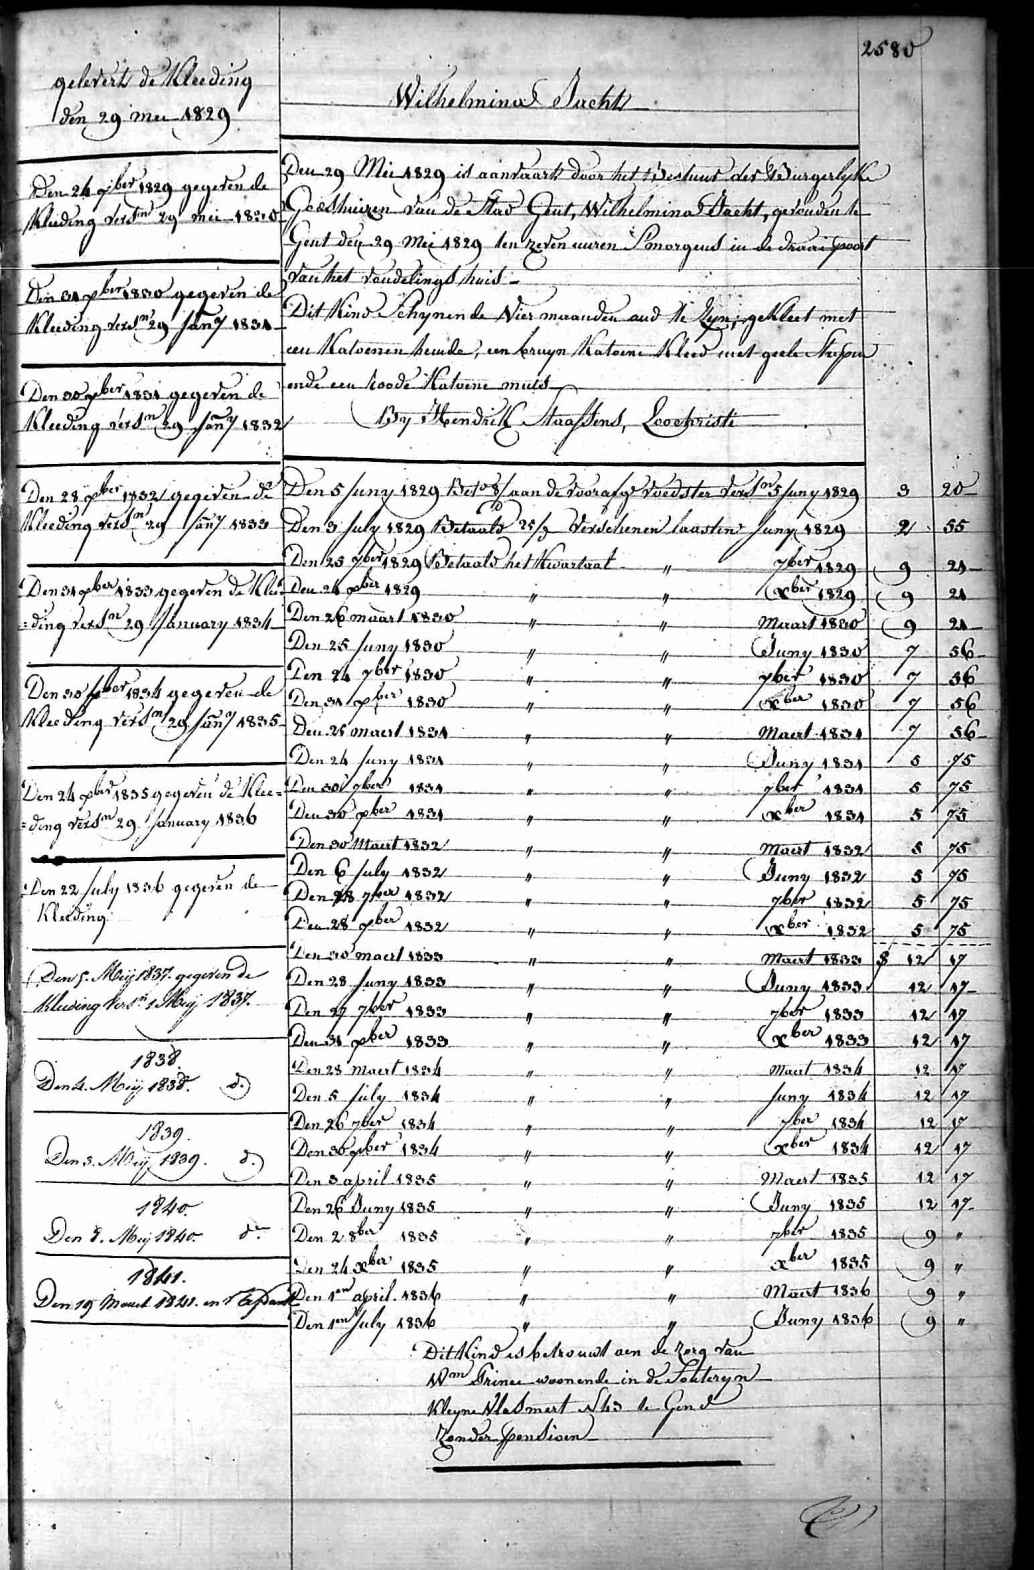 2580
geleverts de Kleeding
den 29 mei 1829
Den 24 xber 1829 gegeven de
Kleeding versn 29 mei 1830
Den 31 xber 1830 gegeven de
Kleeding versn 29 Jany 1831
Den 30 xber 1831 gegeven de
Kleeding versn 29 Jany 1832
Den 28 xber 1832 gegeven de
Kleeding versn 29 Jany 1833
Den 31 xber 1833 gegeven de Klee
=ding versn 29 January 1834
Den 30 xber 1834 gegeven de
Kleeding versn 29 Jany 1835
Den 24 xber 1835 gegeven de Klee=
=ding versn 29 January 1836
Den 22 July 1836 gegeven de
Kleeding
Den 5. Meij 1837. gegeven de
Kleeding versn 1 Meij 1837.
1838
Den 4. Meij 1838. d.o
1839.
Den 3. Meij 1839. d.o
1840
Den 8. Meij 1840 do
1841.
Den 19 Maert 1841. en
Wilhelmina Dacht
Den 29 Mei 1829 is aanvaart door het Bestuur der Burgerlyke
Godshuizen van de Stad Gent, Wilhelmina Dacht, gevonden te
Gent den 29 Mei 1829 ten zeven uuren S'morgens in de draaipoort
van het vondelingshuis
Dit Kind Schynende Vier maanden oud te zyn; gekleet met
een Katoenen hemde, een bruyn Katoene Kleed met geele Strepen
ende een roode Katoene muts
By Hendrik Staassens, Loochristi
Den 5 Juny 1829 aan de voorafge voedster versn 5 Juny 1829 3 20
Den 3 July 1829 Betaald 25/ Verschenen laasten Juny 1829 2 55
Den 25 7ber 1829 Betaald het Kwartaal " 7ber 1829 9 21
Den 24 xber 1829 " " xber 1829 9 21
Den 26 maart 1830 " " Maart 1830 9 21
Den 25 Juny 1830 " " Juny 1830 7 56
Den 24 7ber 1830 " " 7ber 1830 7 56
Den 31 xber 1830 " " xber 1830 7 56
Den 25 maert 1831 " " Maert 1831 7 56
Den 24 Juny 1831 " " Juny 1831 5 75
Den 30 7ber 1831 " " 7ber 1831 5 75
Den 30 xber 1831 " " xber 1831 5 75
Den 30 Maert 1832 " " Maert 1832 5 75
Den 6 July 1832 " " Juny 1832 5 75
Den 28 7ber 1832 " " 7ber 1832 5 75
Den 28 xber 1832 " " xber 1832 5 75
Den 30 maert 1833 " " Maert 1833 12 17
Den 28 Juny 1833 " " Juny 1833 12 17
Den 27 7ber 1833 " " 7ber 1833 12 17
Den 31 xber 1833 " " xber 1833 12 17
Den 28 maert 1834 " " Maert 1834 12 17
Den 5 July 1834 " " Juny 1834 12 17
Den 26 7ber 1834 " " 7ber 1834 12 17
Den 30 xber 1834 " " xber 1834 12 17
Den 3 april 1835 " " Maert 1835 12 17
Den 26 Juny 1835 " " Juny 1835 12 17
Den 2 8ber 1835 " " 7ber 1835 9 "
Den 24 xber 1835 " " xber 1835 9 "
Den 1en april 1836 " " Maert 1836 9 "
Den 1en July 1836 " " Juny 1836 9 "
Dit Kind is betrouwt aen de zorg van
Wm Prinee woonende in de
Kleyne Vlasmert N 43 te Gend
zonder pensioen